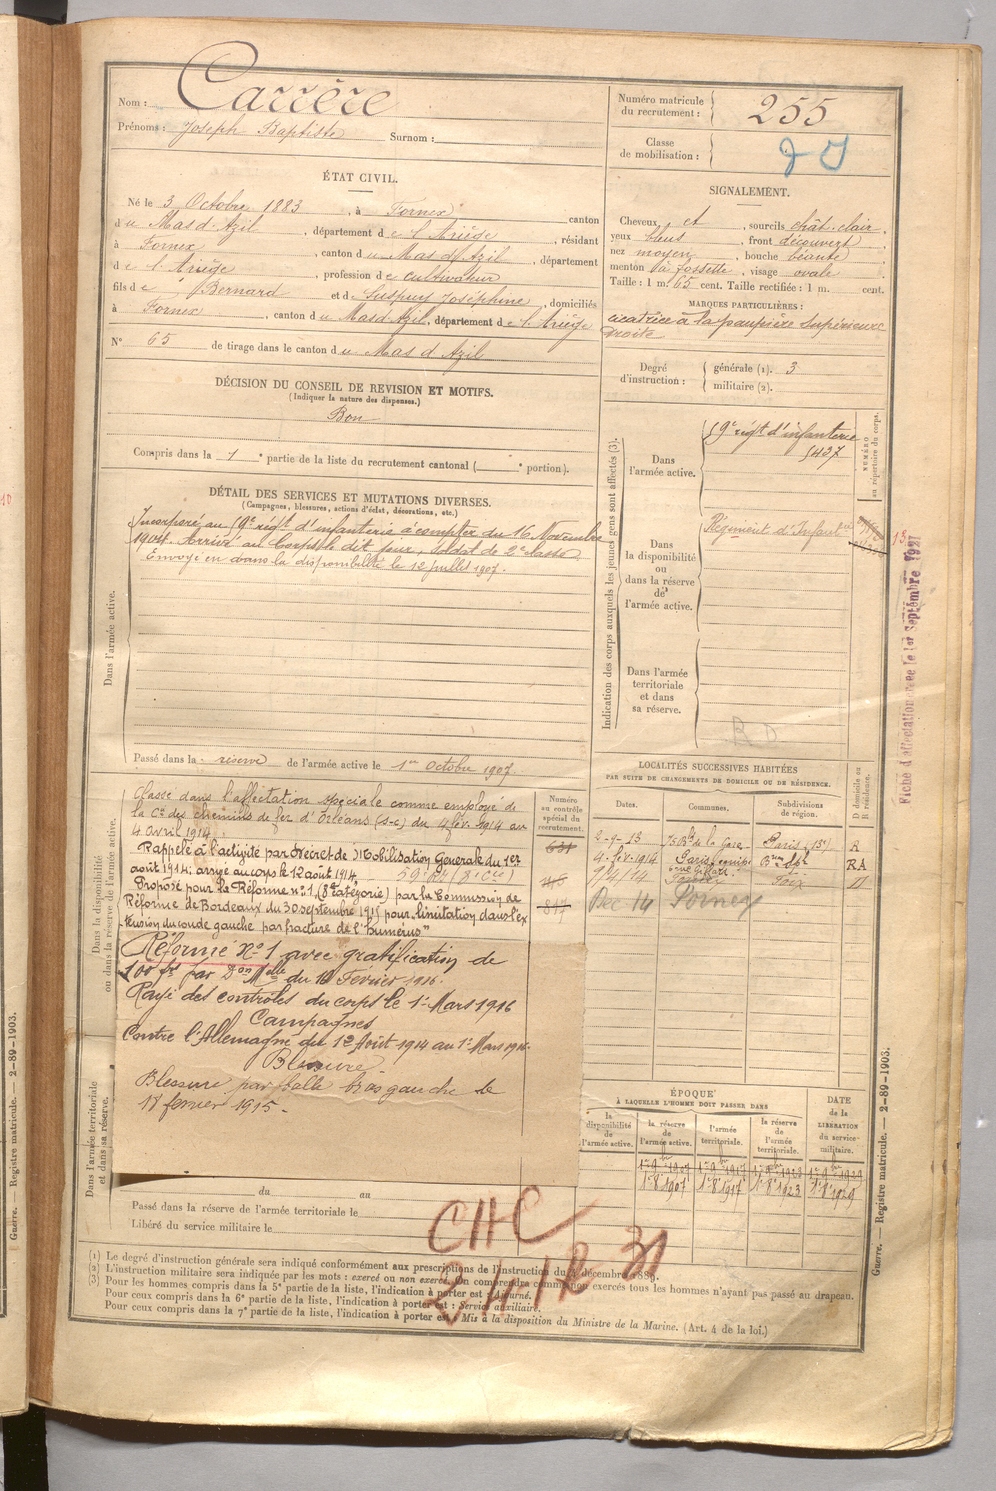 Nom : Carrère
Prénoms : Joseph Baptiste Surnom :
Numéro matricule du recrutement : 255
Classe de mobilisation :
ÉTAT CIVIL.
Né le 3 Octobre 1883, à Fornex canton
du Mas d'Azil, département de l'Ariège, résidant
à Fornex, canton du Mas d'Azil, département
de l'Ariège, profession de cultivateur
fils de Bernard et de Suspuy Joséphine, domiciliés
à Fornex, canton du Mas d'Azil, département de l'Ariège
N° 65 de tirage dans le canton du Mas d'Azil
SIGNALEMENT.
Cheveux et, sourcils chât. clair,
yeux bleus, front découvert,
nez moyen, bouche béante,
menton à fossette, visage ovale
Taille : 1 m. 65 cent. Taille rectifiée : 1 m. cent.
MARQUES PARTICULIÈRES :
cicatrice à la paupière supérieure
droite
Degré d'instruction : générale (1). 3
militaire (2).
DÉCISION DU CONSEIL DE REVISION ET MOTIFS.
(Indiquer la nature des dispenses.)
Bon
Compris dans la 1e partie de la liste du recrutement cantonal ( e portion).
DÉTAIL DES SERVICES ET MUTATIONS DIVERSES.
(Campagnes, blessures, actions d'éclat, décorations, etc.)
Dans l'armée active.
Incorporé au 19e régt d'infanterie à compter du 16 Novembre
1904. Arrivé au Corps le dit jour, Soldat de 2e classe
Envoyé en dans la disponibilité le 12 juillet 1907.
Passé dans la réserve de l'armée active le 1er Octobre 1907
Indication des corps auxquels les jeunes gens sont affectés (3).
Dans l'armée active.
19e régt d'infanterie
5437
NUMÉRO au répertoire du corps.
Dans la disponibilité ou dans la réserve de l'armée active.
Régiment d'Infantie
Dans l'armée territoriale et dans sa réserve.
Fiche d'affectation créée le 1er Septembre 1921
Dans la disponibilité ou dans la réserve de l'armée active.
Classé dans l'affectation spéciale comme employé de
la Cie des chemins de fer d'Orléans (S-C) du 4 fév. 1914 au
4 avril 1914.
Rappelé à l'activité par Décret de Mobilisation Générale du 1er
août 1914; arrivé au corps le 12 août 1914
Proposé pour la Réforme n° 1 (8e catégorie) par la Commission de
Réforme de Bordeaux du 30 septembre 1915 pour "limitation dans l'ex
tension du coude gauche par fracture de l'humérus"
Réformé N° 1 avec gratification de
100 frs par Don Mlle du 10 Février 1916.
Rayé des contrôles du corps le 1er Mars 1916
Campagnes
Contre l'Allemagne du 12 Août 1914 au 1er Mars 1916.
Blessure.
Blessure par balle bras gauche le
18 fevrier 1915.
Numéro au contrôle spécial du recrutement.
631
817
LOCALITÉS SUCCESSIVES HABITÉES
PAR SUITE DE CHANGEMENTS DE DOMICILE OU DE RÉSIDENCE.
Dates. Communes. Subdivisions de région. D domicile ou R résidence.
2-9-13 76 Bd de la Gare Paris (13e) R
4. fév. 1914 RA
7/4/14 Foix
Dec 14 Fornex
ÉPOQUE
À LAQUELLE L'HOMME DOIT PASSER DANS
la disponibilité de l'armée active. la réserve de l'armée active. l'armée territoriale. la réserve de l'armée territoriale.
DATE de la LIBÉRATION du service militaire.
1er 8bre 1907 1er 8bre 1917 1er 8bre 1923 1er 8bre 1929
Dans l'armée territoriale et dans sa réserve.
du au
Passé dans la réserve de l'armée territoriale le
Libéré du service militaire le
(1) Le degré d'instruction générale sera indiqué conformément aux prescriptions de l'instruction du 4 décembre 1889.
(2) L'instruction militaire sera indiquée par les mots : exercé ou non exercé. On comprendra comme non exercés tous les hommes n'ayant pas passé au drapeau.
(3) Pour les hommes compris dans la 5e partie de la liste, l'indication à porter est : Ajourné.
Pour ceux compris dans la 6e partie de la liste, l'indication à porter est : Service auxiliaire.
Pour ceux compris dans la 7e partie de la liste, l'indication à porter est : Mis à la disposition du Ministre de la Marine. (Art. 4 de la loi.)
Guerre. — Registre matricule. — 2-89-1903.
Guerre. — Registre matricule. — 2-89-1903.